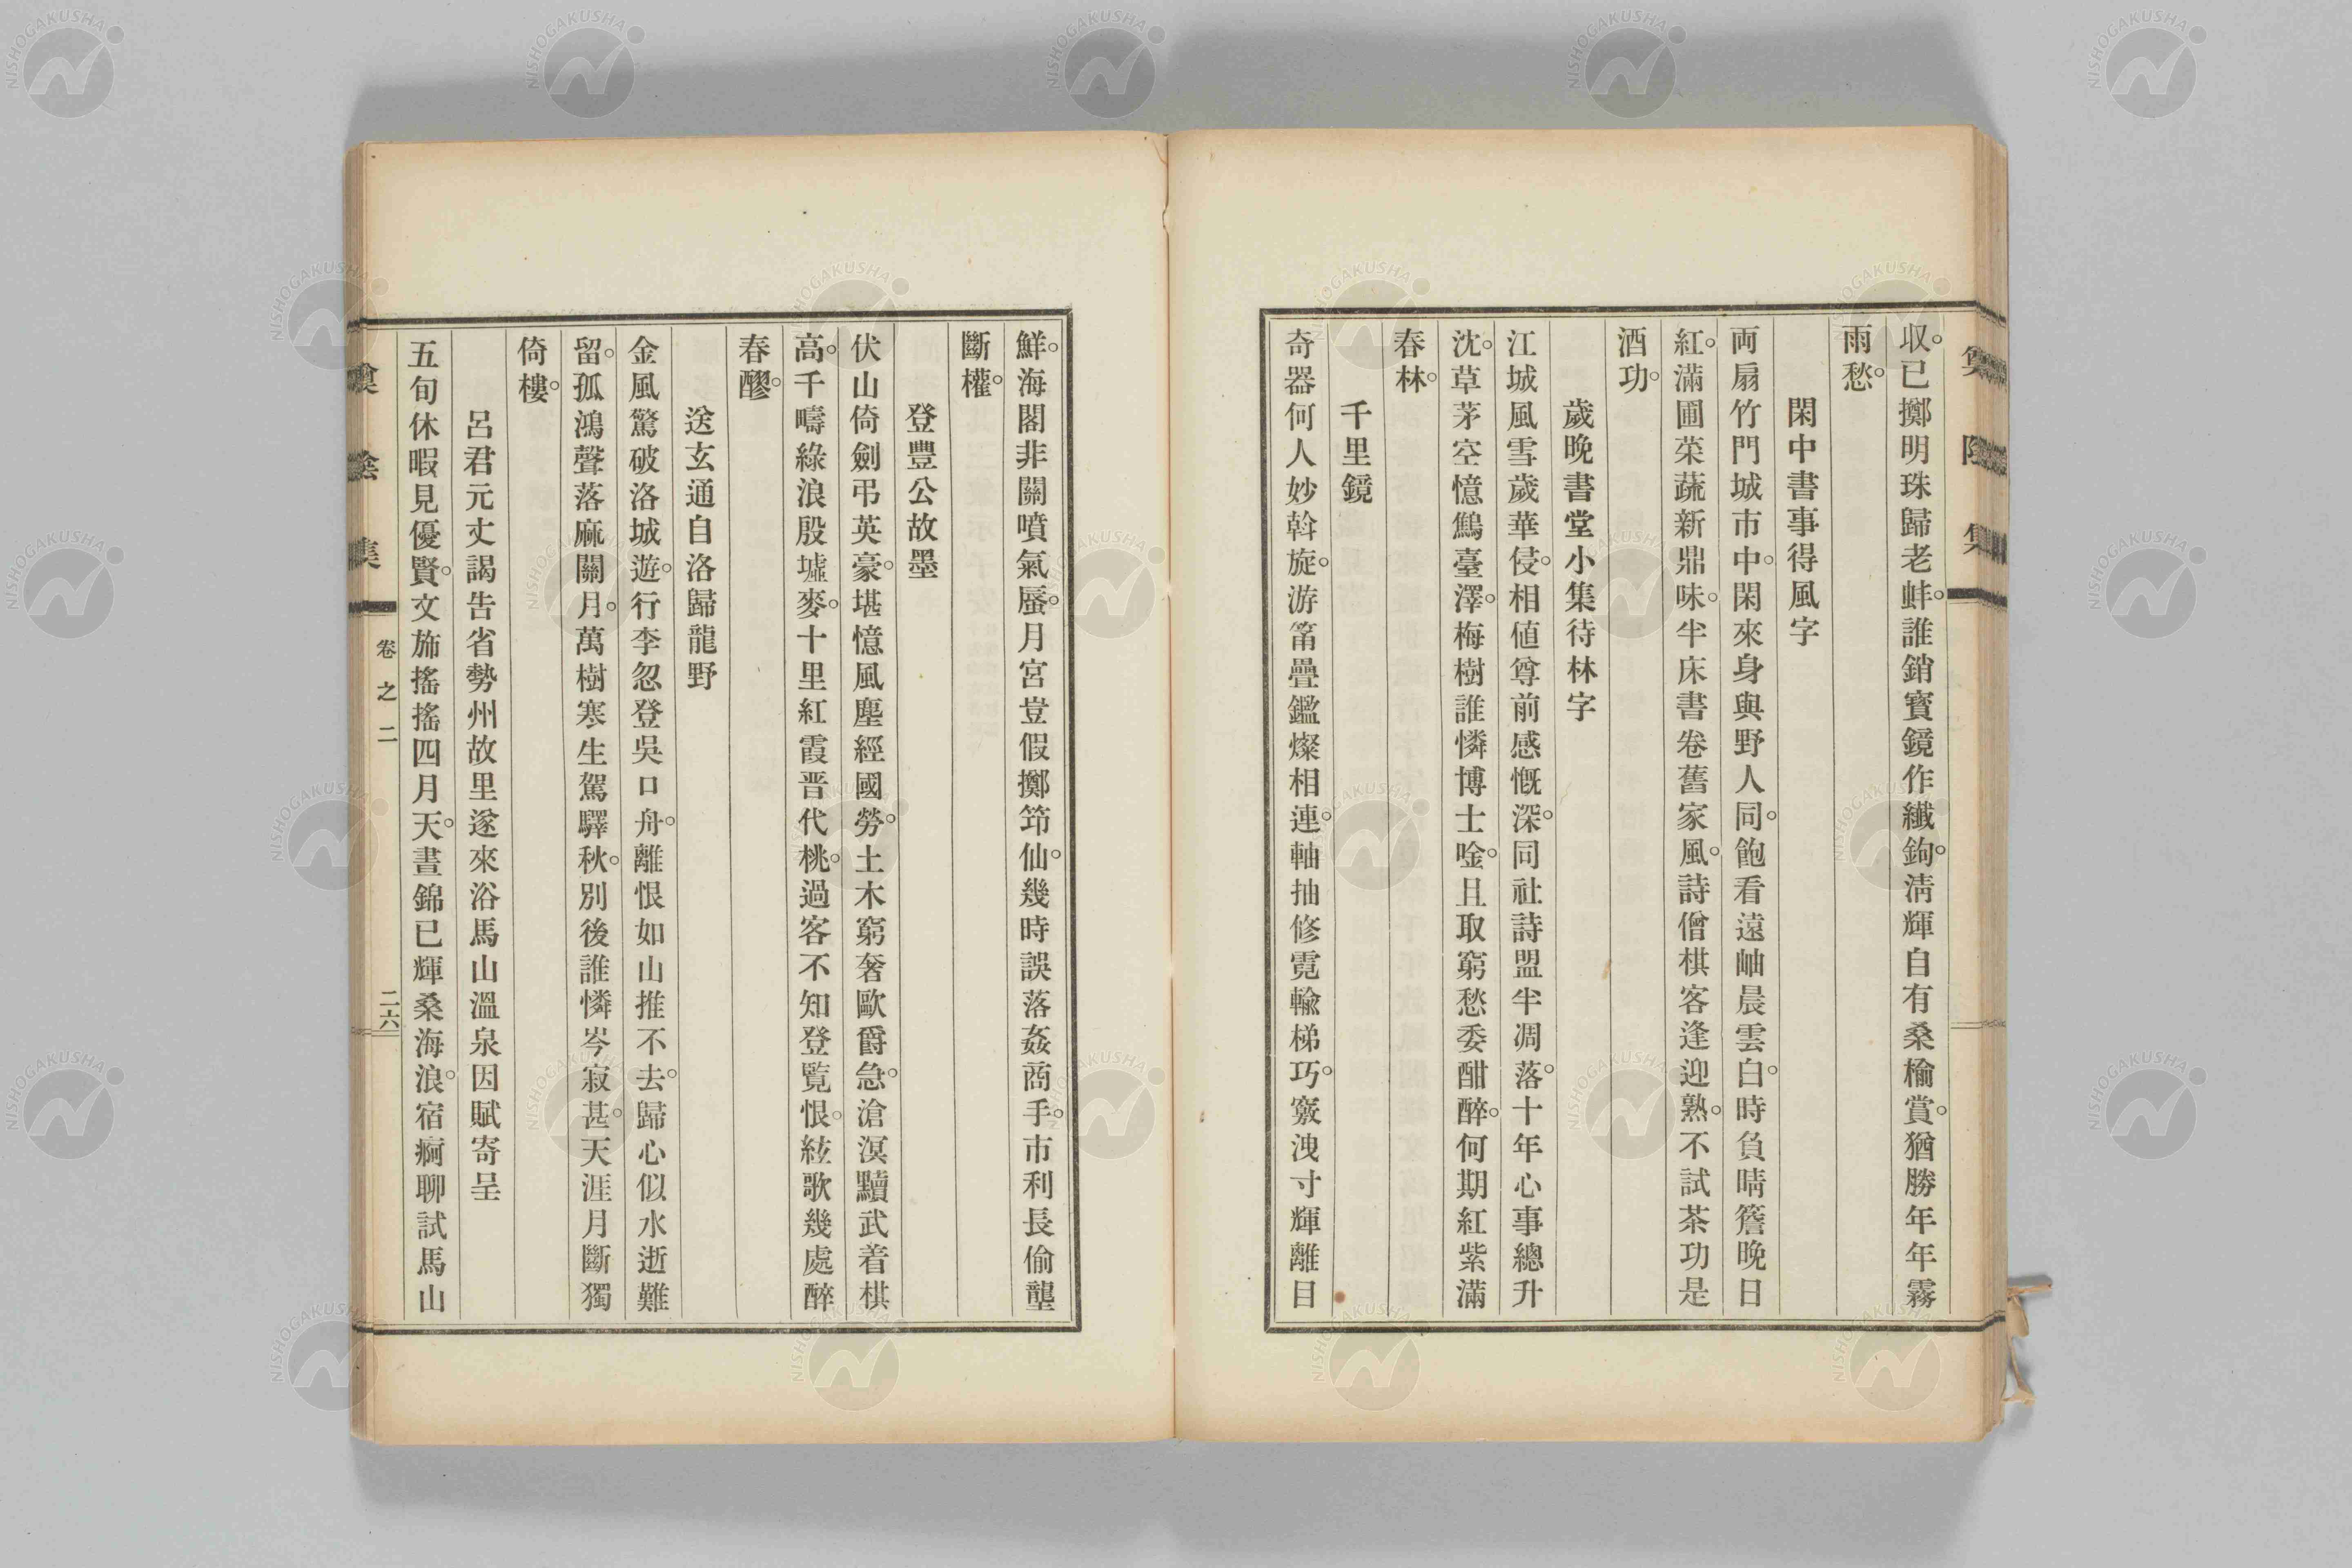 収。已擲明珠歸老蚌。誰銷寶鏡作纖鉤。淸輝自有桑楡賞。猶勝年年霧
雨愁。
閑中書事得風字
両扇竹門城市中。閑來身與野人同。飽看遠岫晨雲白。時負晴簷晚日
紅。滿圃菜蔬新鼎味。半床書卷舊家風。詩僧棋客逢迎熟。不試茶功是
酒功。
歲晚書堂小集待林字
江城風雪歲華侵。相値尊前感慨深。同社詩盟半凋落。十年心事總升
沈。草茅空憶鷦臺澤。梅樹誰憐博士唫。且取窮愁委酣醉。何期紅紫滿
春林。
千里鏡
奇器何人妙斡旋。游筩疊鑑燦相連。軸抽修霓輸梯巧。竅洩寸輝離目
鮮。海閣非關噴氣蜃。月宮豈假擲筇仙。幾時誤落姦商手。市利長偷壟
斷權。
登豐公故墨
伏山倚劍弔英豪。堪憶風塵經國勞。土木窮奢歐爵急。滄溟黷武着棋
高。千疇綠浪殷墟麥。十里紅霞晋代桃。過客不知登覽恨。絃歌幾處醉
春醪。
送玄通自洛歸龍野
金風驚破洛城遊。行李忽登吳口舟。離恨如山推不去。歸心似水逝難
留。孤鴻聲落麻關月。萬樹寒生駕驛秋。別後誰憐岑寂甚。天涯月斷獨
倚樓。
呂君元丈謁告省勢州故里遂來浴馬山溫泉因賦寄呈
五旬休暇見優賢。文斾搖搖四月天。晝錦已輝桑海浪。宿痾聊試馬山
卷之二
二六
NISHOGAKUSHA